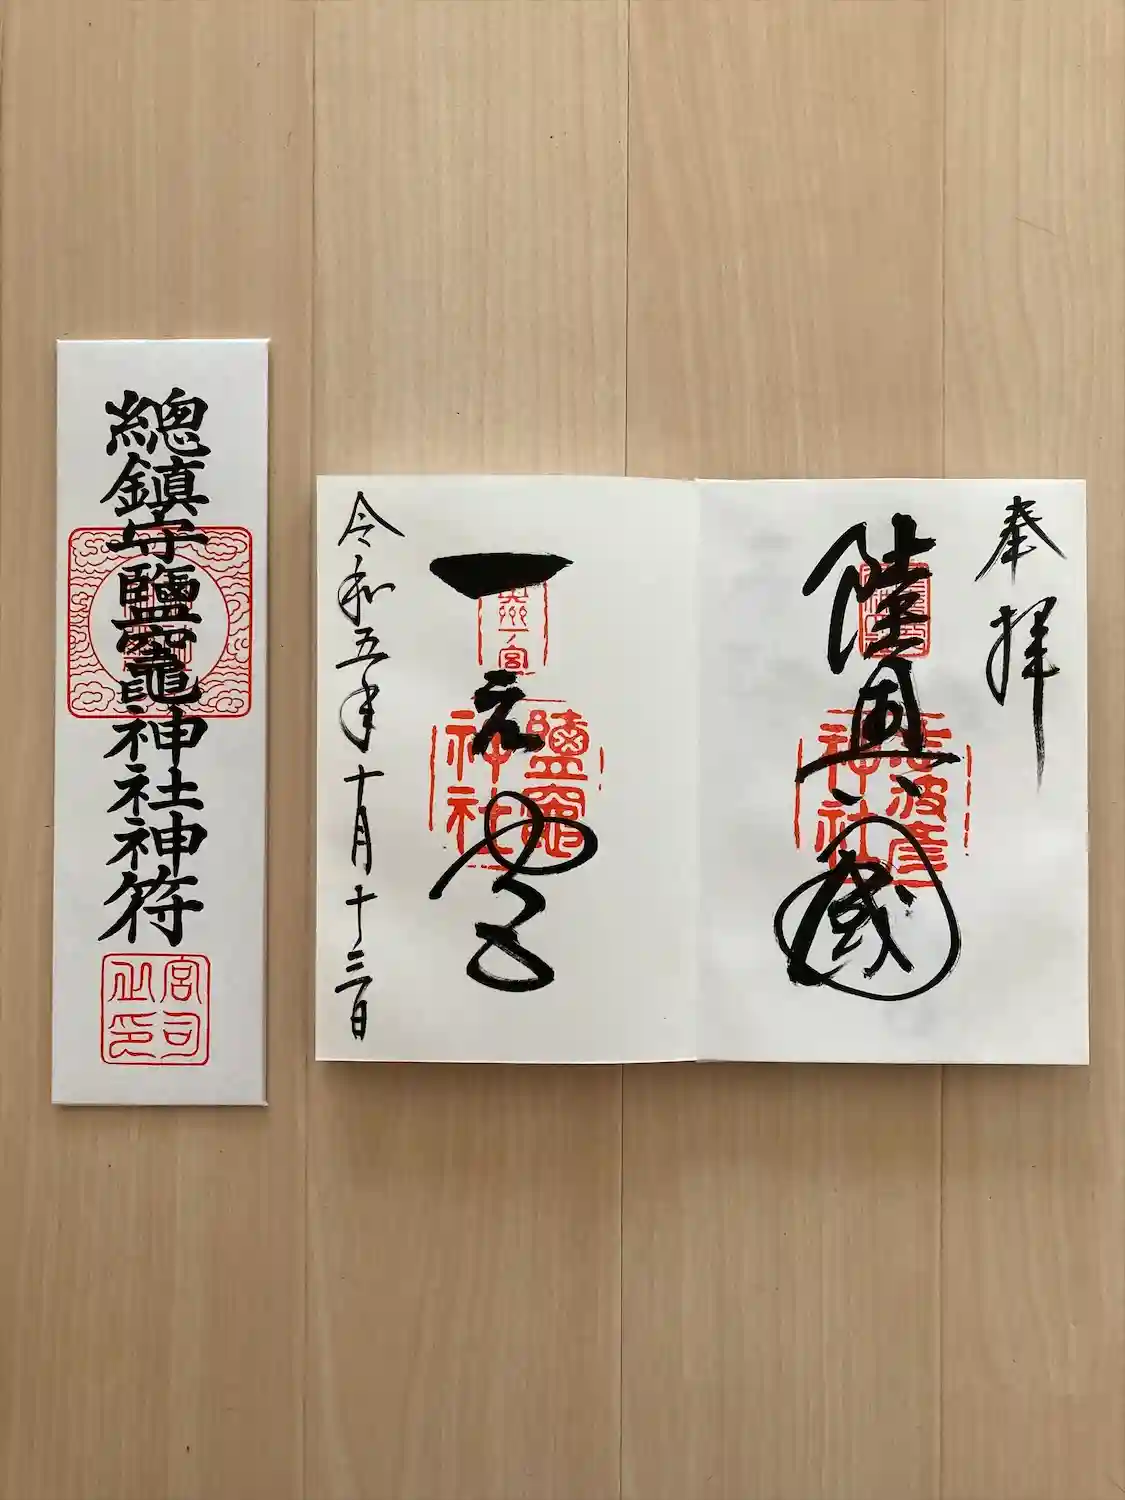 總鎮守鹽竈神社神符
宮司之印
奉拝
陸奥國
志波彦
神社
一之宮
奥州一ノ宮
鹽竈
神社
令和五年十月十三日